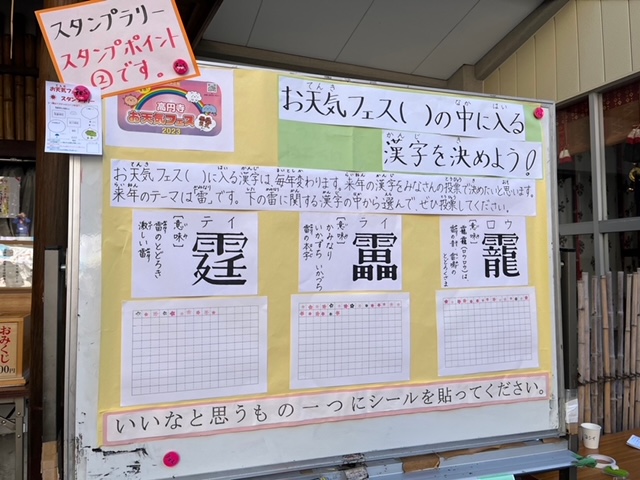 スタンプラリー
スタンプポイント
②です。
お天気フェス
スタンプ
高円寺
お天気フェス
2023
お天気フェス( )の中に入る
漢字を決めよう!
お天気フェス( )に入る漢字は、毎年変わります。来年の漢字をみなさんの投票で決めたいと思います。
来年のテーマは雷です。下の雷に関する漢字の中から選んで、ぜひ投票してください。
テイ
霆
【意味】
雷のとどろき
激しい雷
ライ
靁
【意味】
かみなり
いかずち いかづち
ロウ
靇
【意味】
いいなと思うもの一つにシールを貼ってください。
おみくじ